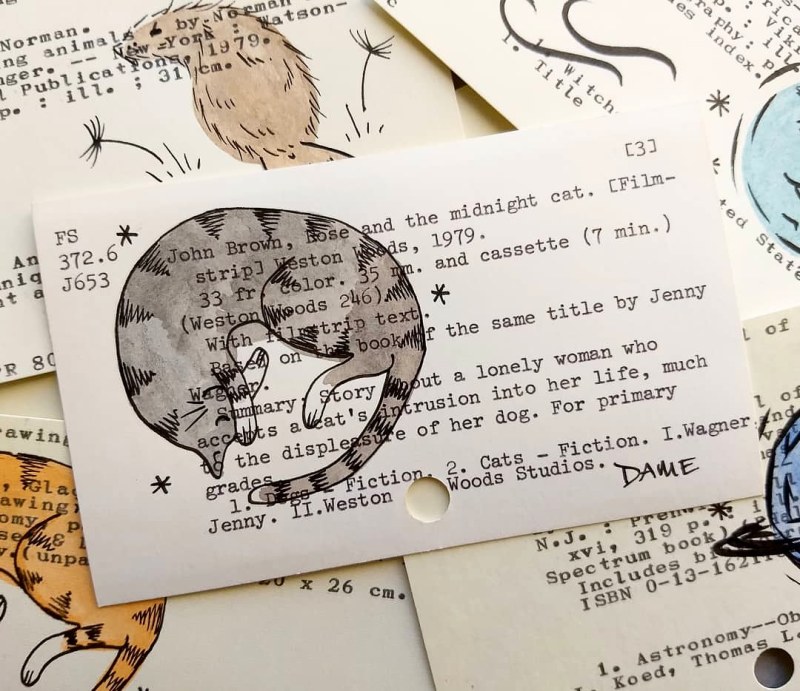 Norman.
by Norman
ing animals
New York : Watson-
nger. --
1979.
l Publications,
p. : ill. ; 31 cm.
1. Witch
Title
index.
ted State
[3]
FS
372.6
J653
John Brown, Rose and the midnight cat. [Film-
strip] Weston Woods, 1979.
33 fr. color. 35 mm. and cassette (7 min.)
(Weston Woods 246).
With filmstrip text.
Based on the book of the same title by Jenny
Wagner.
Summary: Story about a lonely woman who
accepts a cat's intrusion into her life, much
to the displeasure of her dog. For primary
grades.
1. Dogs - Fiction. 2. Cats - Fiction. I.Wagner,
Jenny. II.Weston Woods Studios.
DAME
rawing
20 x 26 cm.
N.J. : Prent
xvi, 319 p. :
Spectrum book)
Includes bi
ISBN 0-13-1621
1. Astronomy--Ob
Koed, Thomas L.